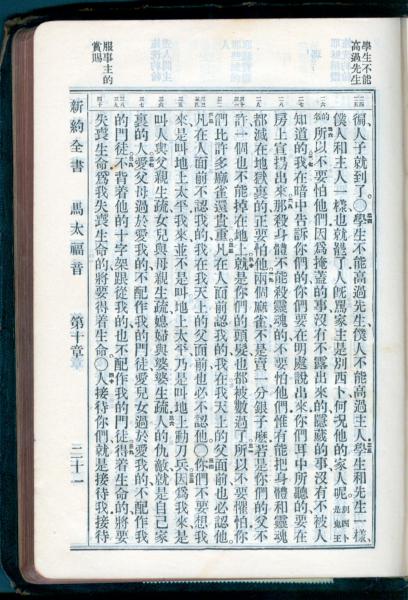 學生不能
高過先生
服事主的
賞賜
徧人子就到了○學生不能高過先生、僕人不能高過主人學生和先生一樣、
僕人和主人一樣也就罷了人旣罵家主是別西卜何況他的家人呢別西卜是鬼王
的所以不要怕他們因爲掩蓋的事沒有不露出來的隱藏的事沒有不被人
知道的我在暗中告訴你們的你們要在明處說出來你們耳中所聽的要在
房上宣揚出來那殺身體不能殺靈魂的不要怕他們惟有能把身體和靈魂
都滅在地獄裏的正要怕他兩個麻雀不是賣一分銀子麽若是你們的父不
許一個也不能掉在地上就是你們的頭髮也都被數過了所以不要懼怕你
們比許多麻雀還貴重凡在人面前認我的我在我天上的父面前也必認他
凡在人面前不認我的我在我天上的父面前也必不認他○你們不要想我
來是叫地上太平我來並不是叫地上太平乃是叫地上動刀兵因爲我來是
叫人與父親生疏女兒與母親生疏媳婦與婆婆生疏人的仇敵就是自己家
裏的人愛父母過於愛我的不配作我的門徒愛兒女過於愛我的不配作我
的門徒不背着他的十字架跟從我的也不配作我的門徒得着生命的將要
失喪生命爲我失喪生命的將要得着生命○人接待你們就是接待我接待
新約全書 馬太福音 第十章 三十一